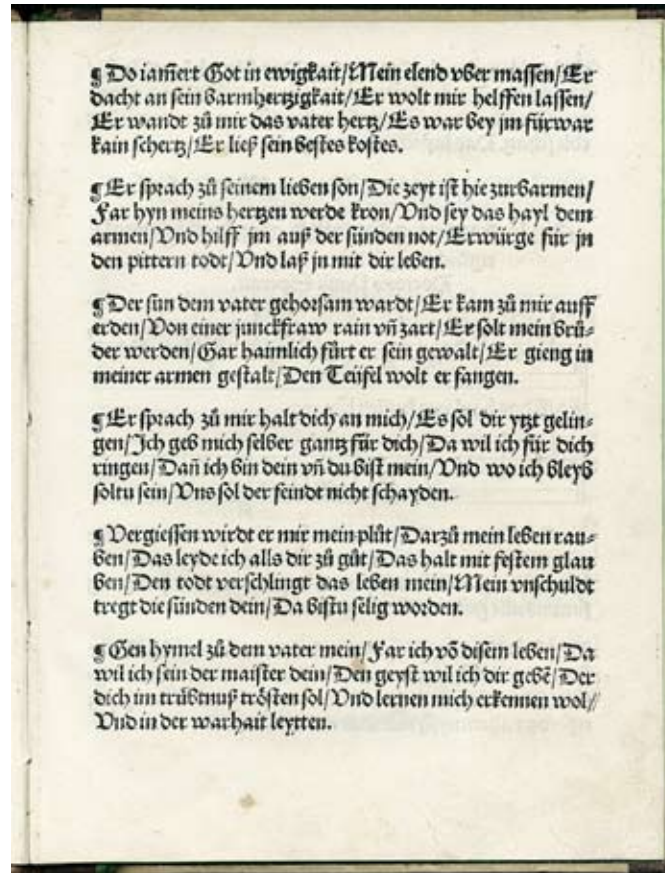 ¶ Do iam̃ert Got in ewigkait/Mein elend vber massen/Er
dacht an sein barmhertzigkait/Er wolt mir helffen lassen/
Er wandt zů mir das vater hertz/Es war bey jm fürwar
kain schertz/Er ließ sein bestes kostes.
¶ Er sprach zů seinem lieben son/Die zeyt ist hie zurbarmen/
Far hyn meins hertzen werde kron/Vnd sey das hayl dem
armen/Vnd hilff jm auß der sünden not/Erwürge für jn
den pittern todt/Vnd laß jn mit dir leben.
¶ Der sun dem vater gehorsam wardt/Er kam zů mir auff
erden/Von einer junckfraw rain vñ zart/Er solt mein brů⸗
der werden/Gar haimlich fůrt er sein gewalt/Er gieng in
meiner armen gestalt/Den Teüfel wolt er fangen.
¶ Er sprach zů mir halt dich an mich/Es sol dir ytzt gelin⸗
gen/Ich geb mich selber gantz für dich/Da wil ich für dich
ringen/Dañ ich bin dein vñ du bist mein/Vnd wo ich bleyb
soltu sein/Vns sol der feindt nicht schayden.
¶ Vergiessen wirdt er mir mein plůt/Darzů mein leben rau⸗
ben/Das leyde ich alls dir zů gůt/Das halt mit festem glau
ben/Den todt verschlingt das leben mein/Mein vnschuldt
tregt die sünden dein/Da bistu selig worden.
¶ Gen hymel zů dem vater mein/Far ich võ disem leben/Da
wil ich sein der maister dein/Den geyst wil ich dir gebẽ/Der
dich im trübtnuß trösten sol/Vnd lernen mich erkennen wol//
Vnd in der warhait leytten.